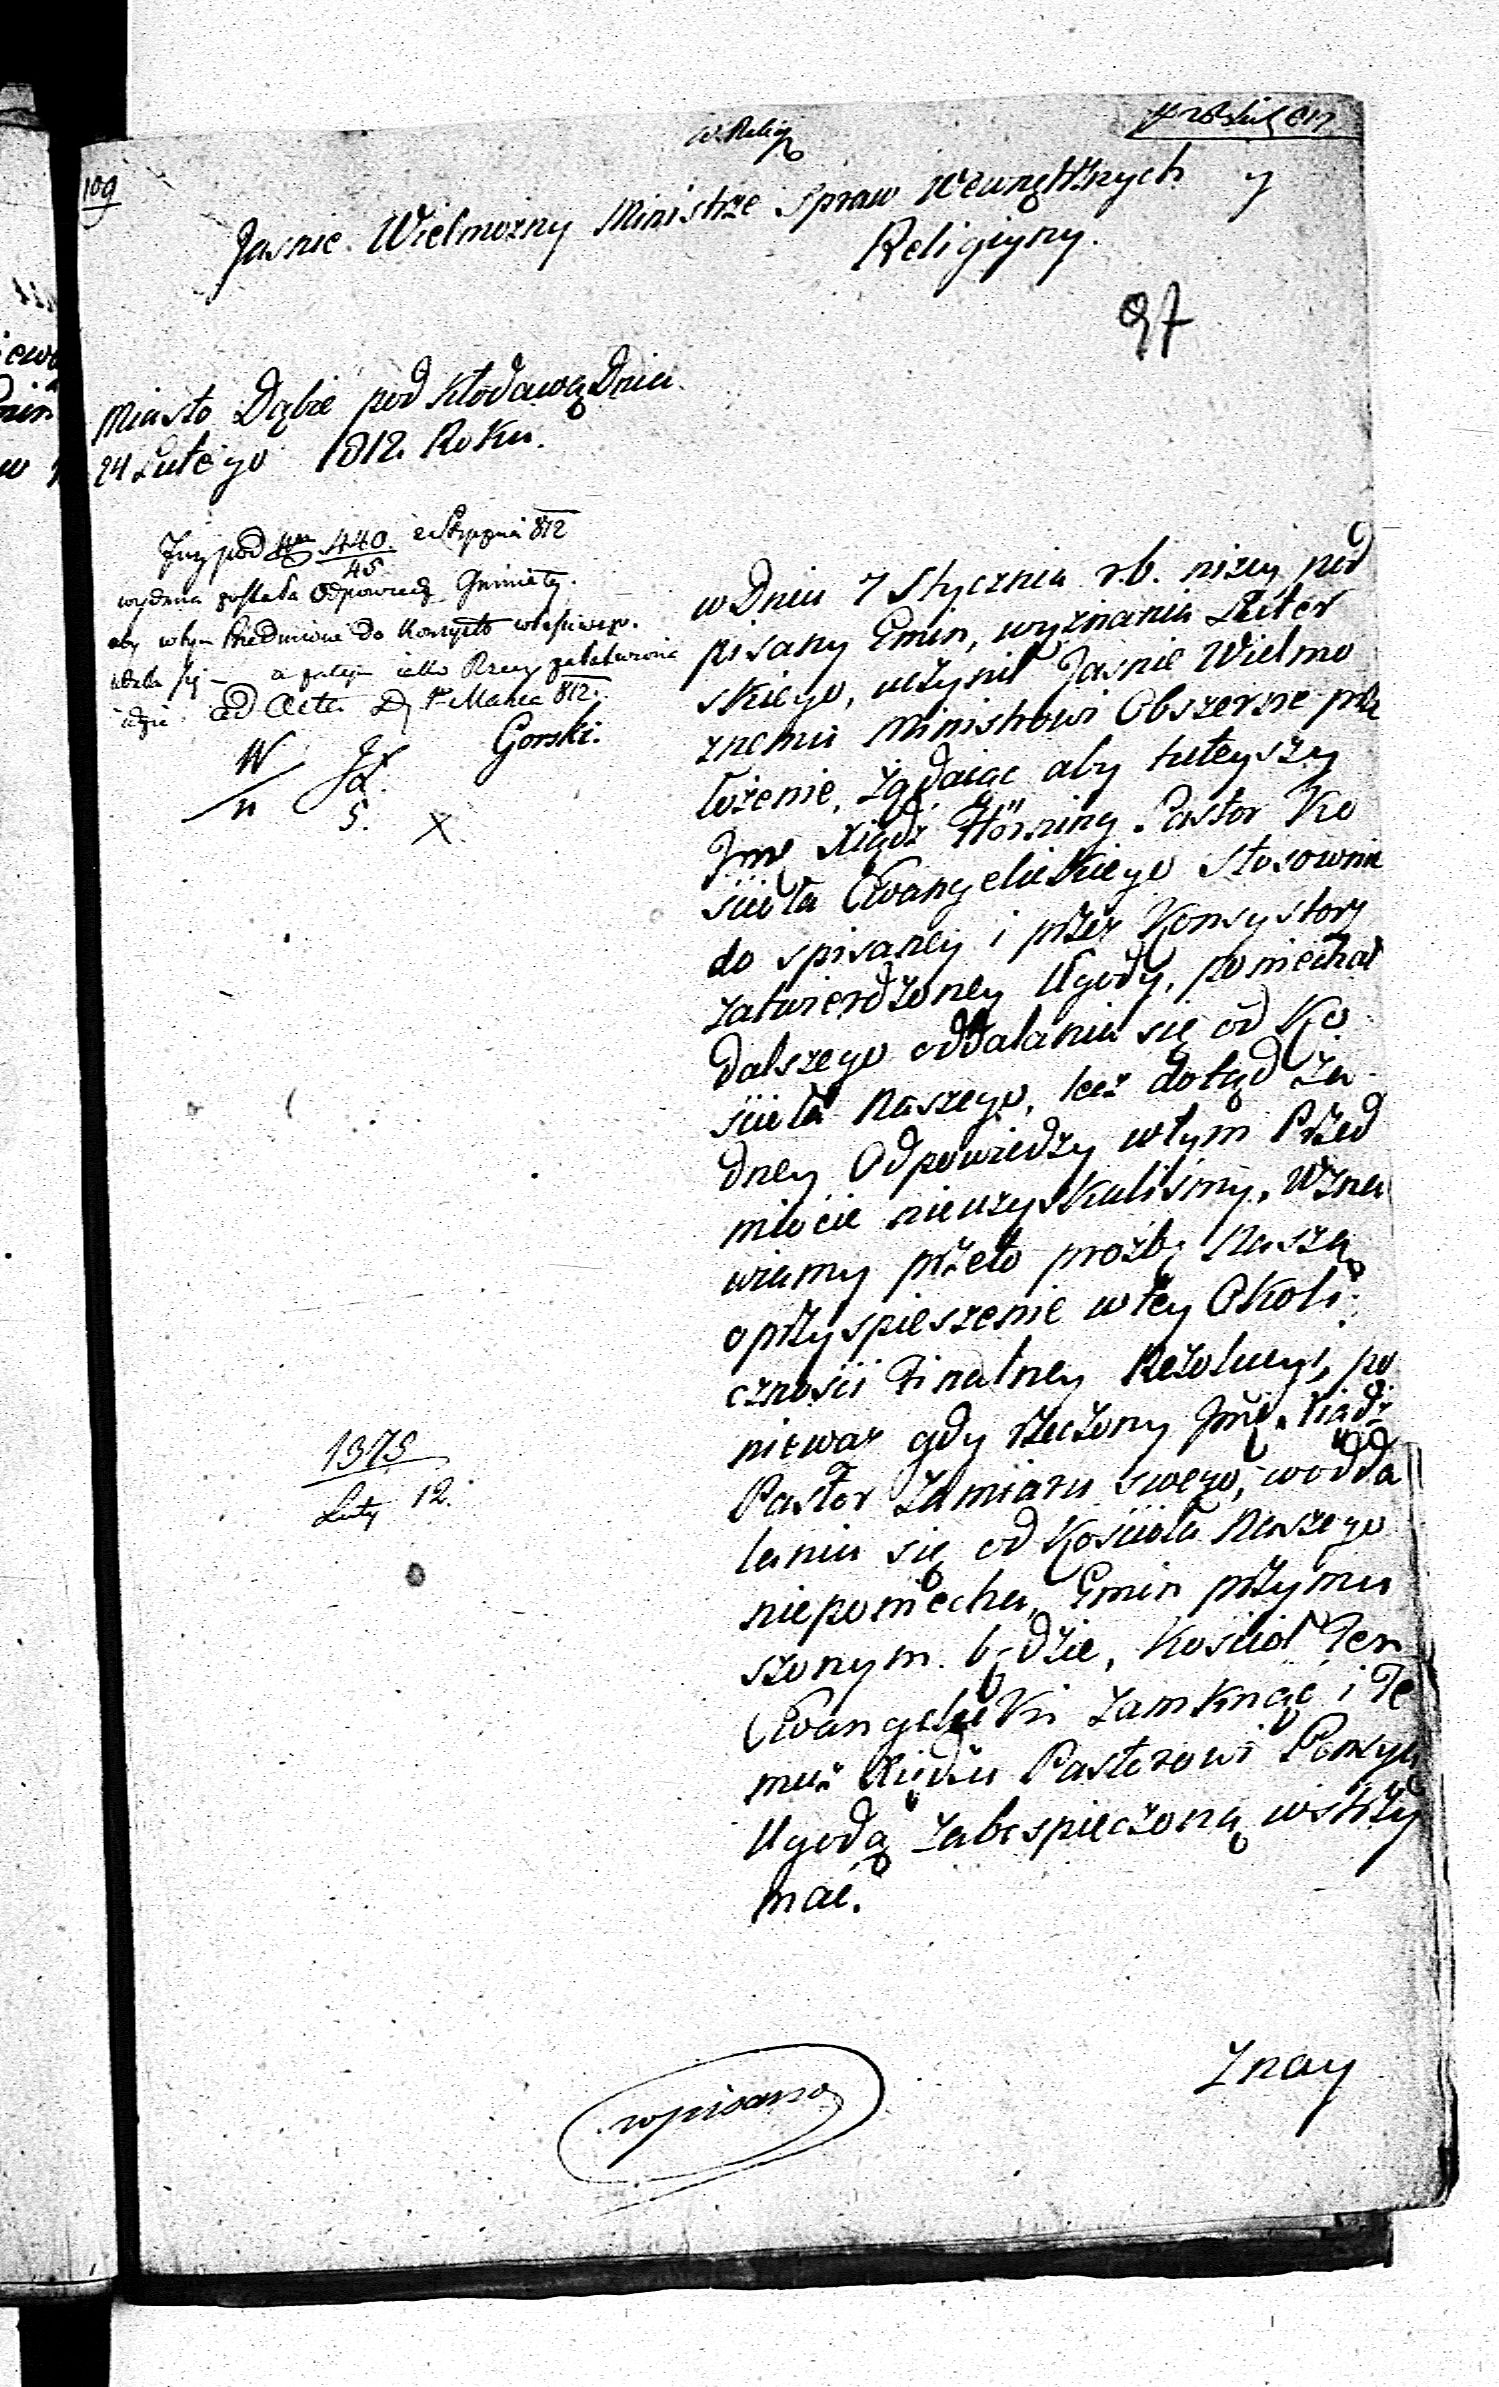 w Relig
109
Jasnie Wielmożny Ministrze Spraw Wewnętrznych y
Religiyny.
97
Miasto Dąbie pod Kłodawą Dnia
24 Lutego 1812. Roku.
Juz pod 440 2 Stycznia 812
45
wydana została Odpowiedz Gminie tey.
aby w tym Przedmiocie do Konsyst właściwego.
udała się — a zatym iako Rzecz załatwiona
idzie ad Acta D 1 Marca 812.
Gorski.
W
n
5. X
w Dniu 7 Stycznia r.b. niżey pod
pisany Gmin, wyznania Luter
skiego, uczynił Jasnie Wielmo
znemu Ministrowi Obszerne prze
łożenie, żądaiąc aby tuteyszy
Jmć Xiądz Hörning Pastor Ko
ścioła Ewangelickiego stosownie
do spisaney i przez Konsystorz
zatwierdzoney Ugody, poniechał
dalszego oddalania się od Ko
ścioła Naszego, lecz dotąd ża
dney Odpowiedzy w tym Przed
miocie nieuzyskaliśmy, Wzna
wiamy przeto prozbę Naszą
o przyspieszenie w tey Okoli
czności Finalney Rezolucyi, po
nieważ gdy rzeczony Jmć Xiądz
Pastor zamiaru swego, w odda
laniu się od Kościoła Naszego
nieponiecha, Gmin przymu
szonym będzie, Kościoł Ten
Ewangelicki zamknąć i Te
muż Xiędzu Pastorowi Pensyą
Ugodą zabespieczoną wstrzy
mać.
1375
Luty 12.
wpisano
Znay